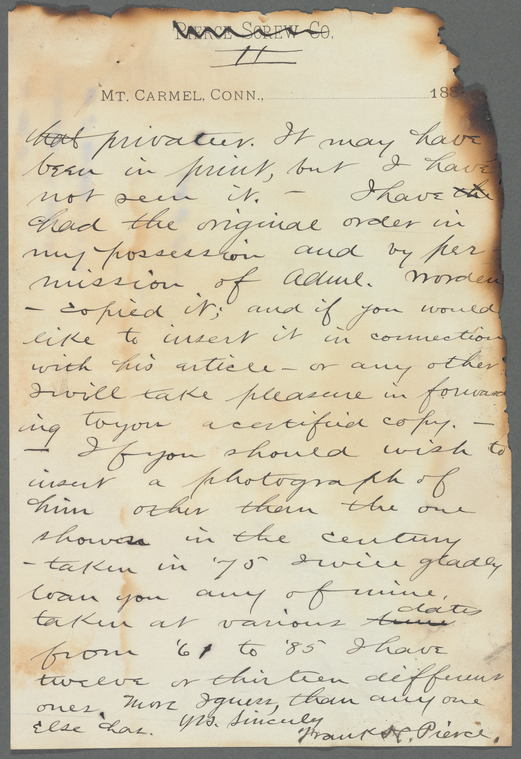 PIERCE SCREW CO.
II
MT. CARMEL, CONN., 188
that privateer. It may have
been in print, but I have
not seen it. – I have the
had the original order in
my possession and by per
mission of Adml. Worden
– copied it; and if you would
like to insert it in connection
with his article – or any other
I will take pleasure in forward
ing to you a certified copy. –
– If you should wish to
insert a photograph of
him other than the one
shown in the century
– taken in '75 I will gladly
loan you any of mine,
dates
taken at various time
from '61 to '85 I have
twelve or thirteen different
ones. More I guess, than any one
else has. Yrs. Sincerely
Frank H. Pierce.